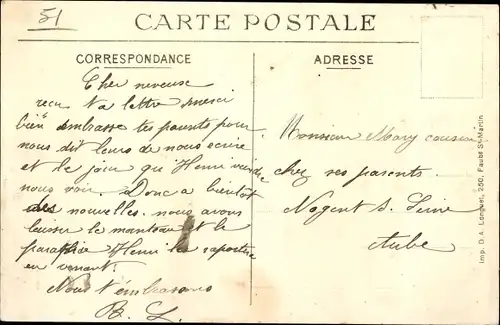 51
CARTE POSTALE
CORRESPONDANCE
Cher neveuse
recu ta lettre merci
bien embrasse tes parents pour
nous dit leurs de nous ecrire
et le jour qu'Henri viendra
nous voir. Donc a bientôt
des nouvelles. nous avons
laisser le manteau et le
parapluie Henri les raportera
en venant.
Nous t'embrassons
B. L.
ADRESSE
Monsieur Mary cousin
chez ses parents
Nogent s. Seine
Aube
Imp. D.A. Longuet, 250, Faubg St-Martin